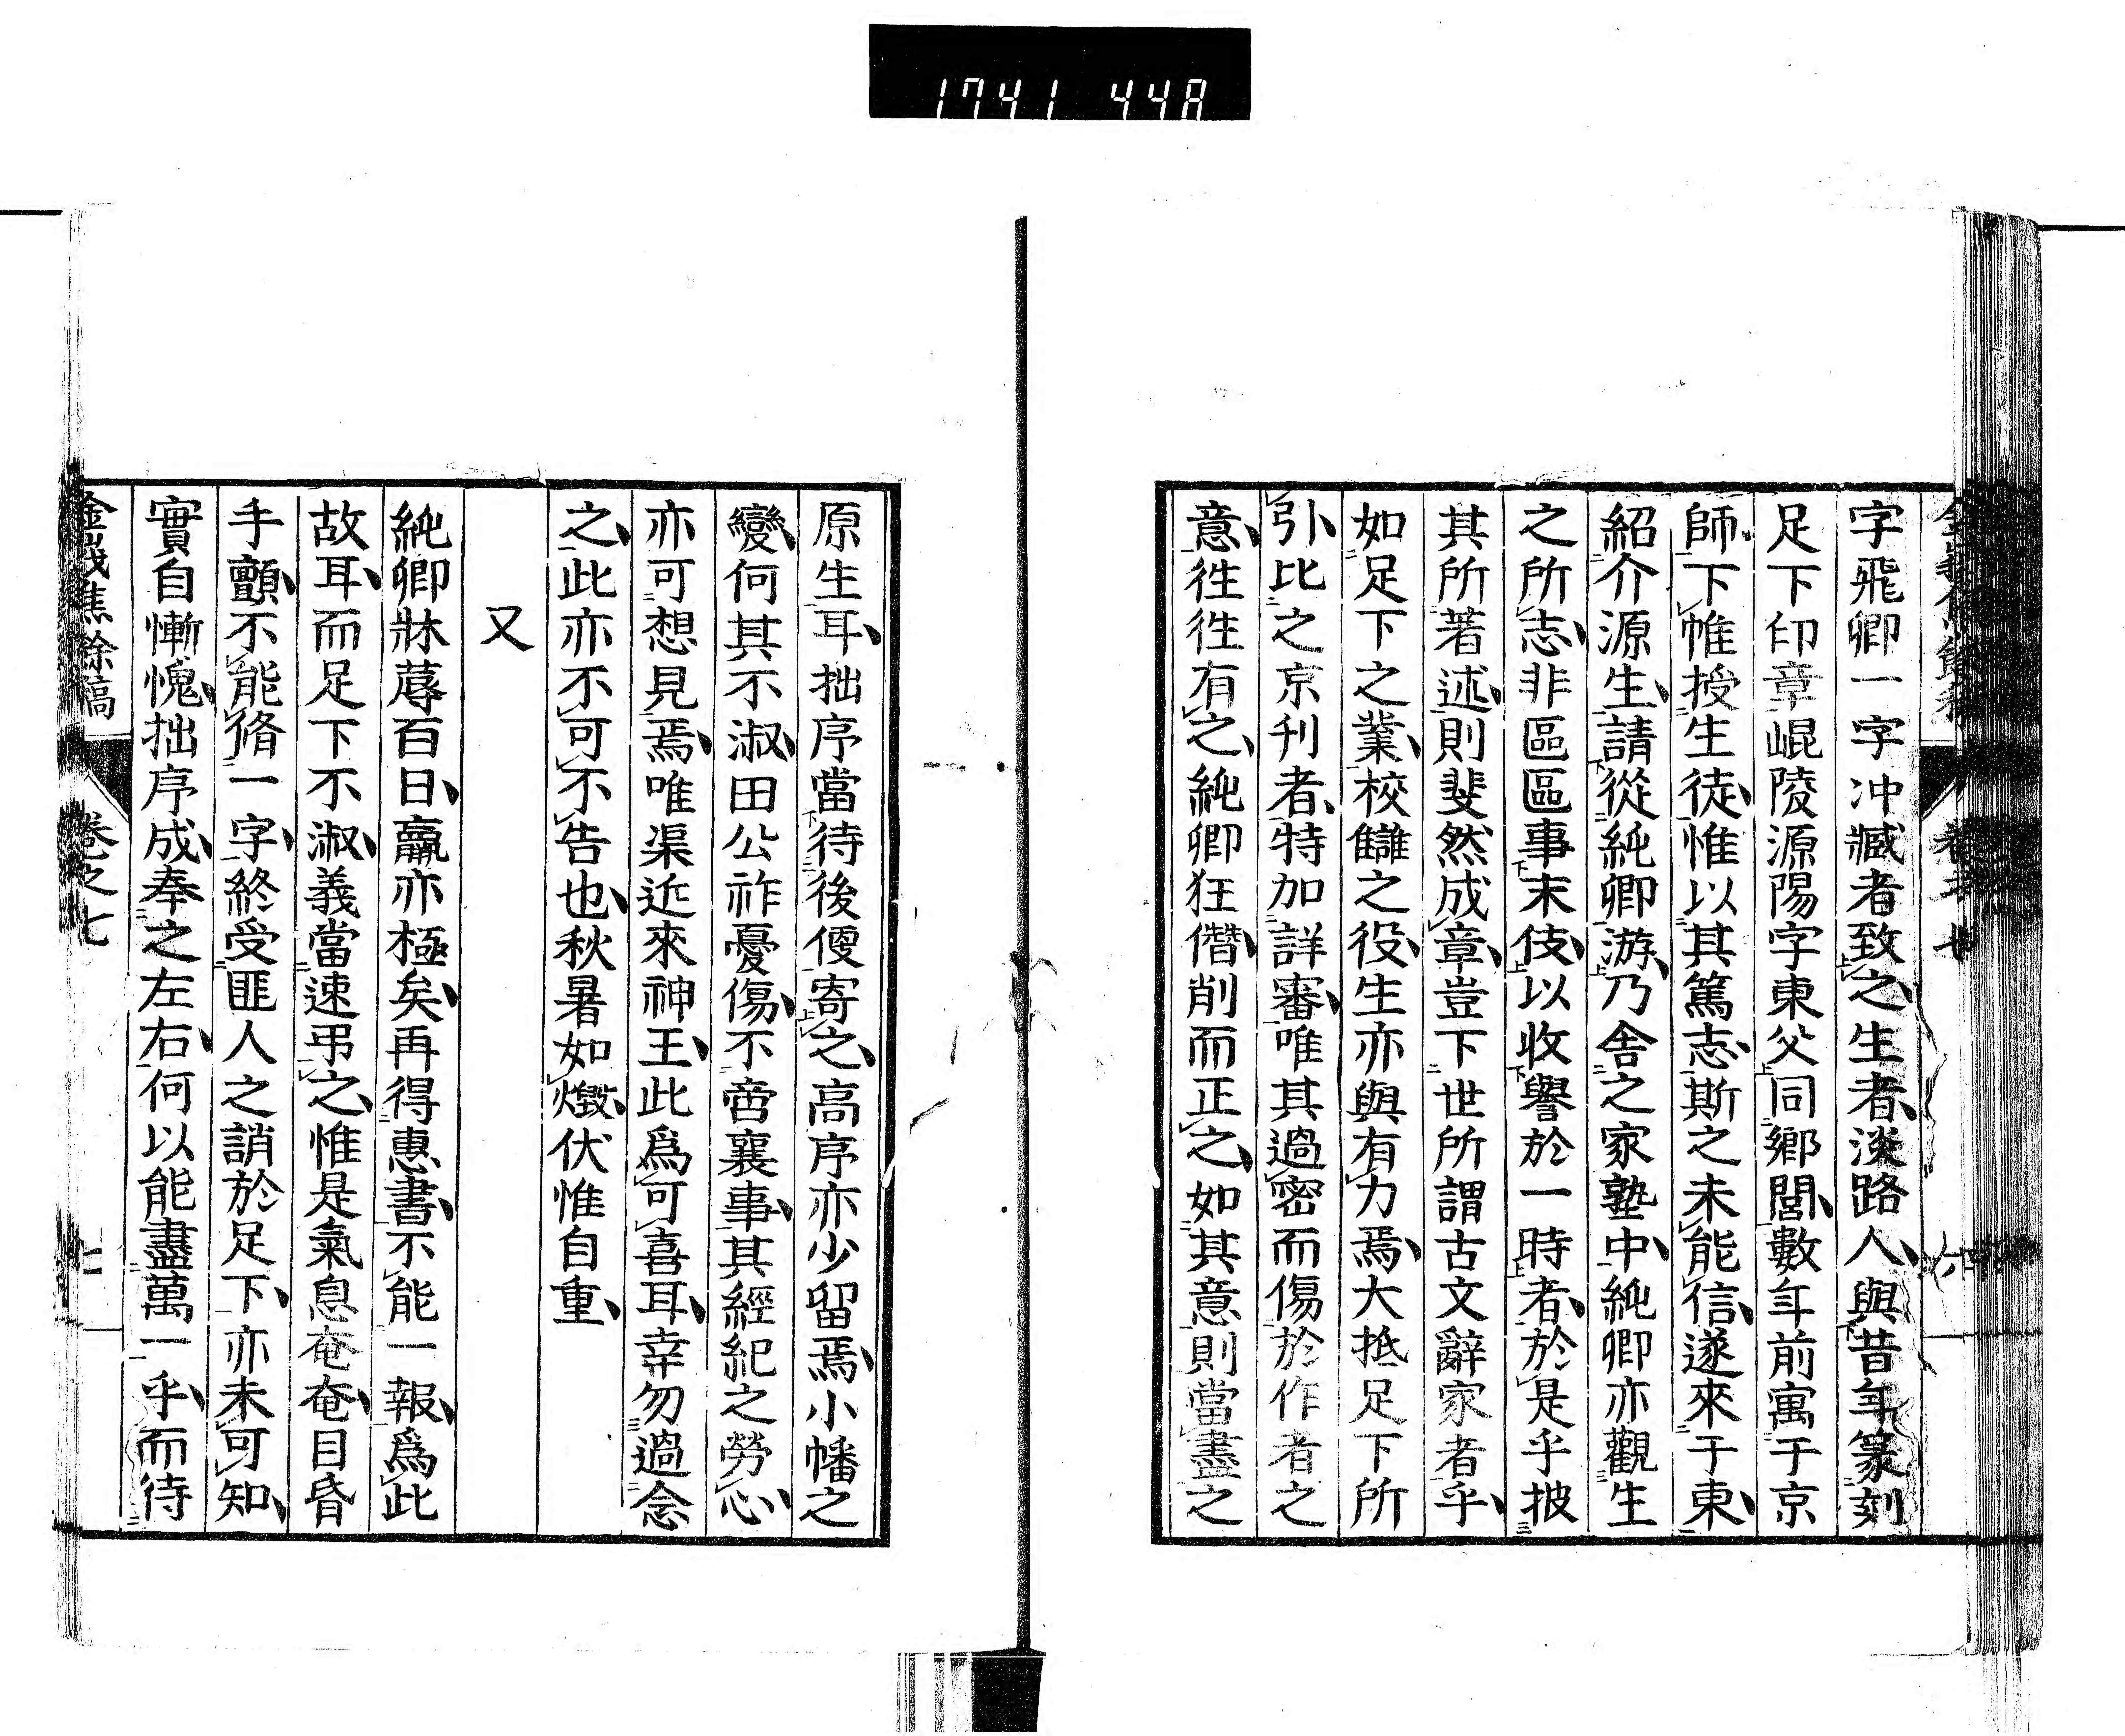 1741 448
字飛卿一字冲臧者致之生者淡路人與昔年篆刻
足下印章崐陵源陽字東父同鄉閭數年前寓于京
師下帷授生徒惟以其篤志斯之未能信遂來于東
紹介源生請從純卿游乃舍之家塾中純卿亦觀生
之所志非區區事末伎以收譽於一時者於是乎披
其所著述則斐然成章豈下世所謂古文辭家者乎
如足下之業校讎之役生亦與有力焉大抵足下所
引比之京刊者特加詳審唯其過密而傷於作者之
意往往有之純卿狂僭削而正之如其意則當盡之
原生耳拙序當待後便寄之高序亦少留焉小幡之
變何其不淑田公祚憂傷不啻襄事其經紀之勞心
亦可想見焉唯渠近來神王此爲可喜耳幸勿過念
之此亦不可不告也秋暑如燬伏惟自重
又
純卿牀蓐百日羸亦極矣再得惠書不能一報爲此
故耳而足下不淑義當速弔之惟是氣息奄奄目昏
手顫不能脩一字終受匪人之誚於足下亦未可知
實自慚愧拙序成奉之左右何以能盡萬一乎而待
金峨焦餘稿 卷之七 七